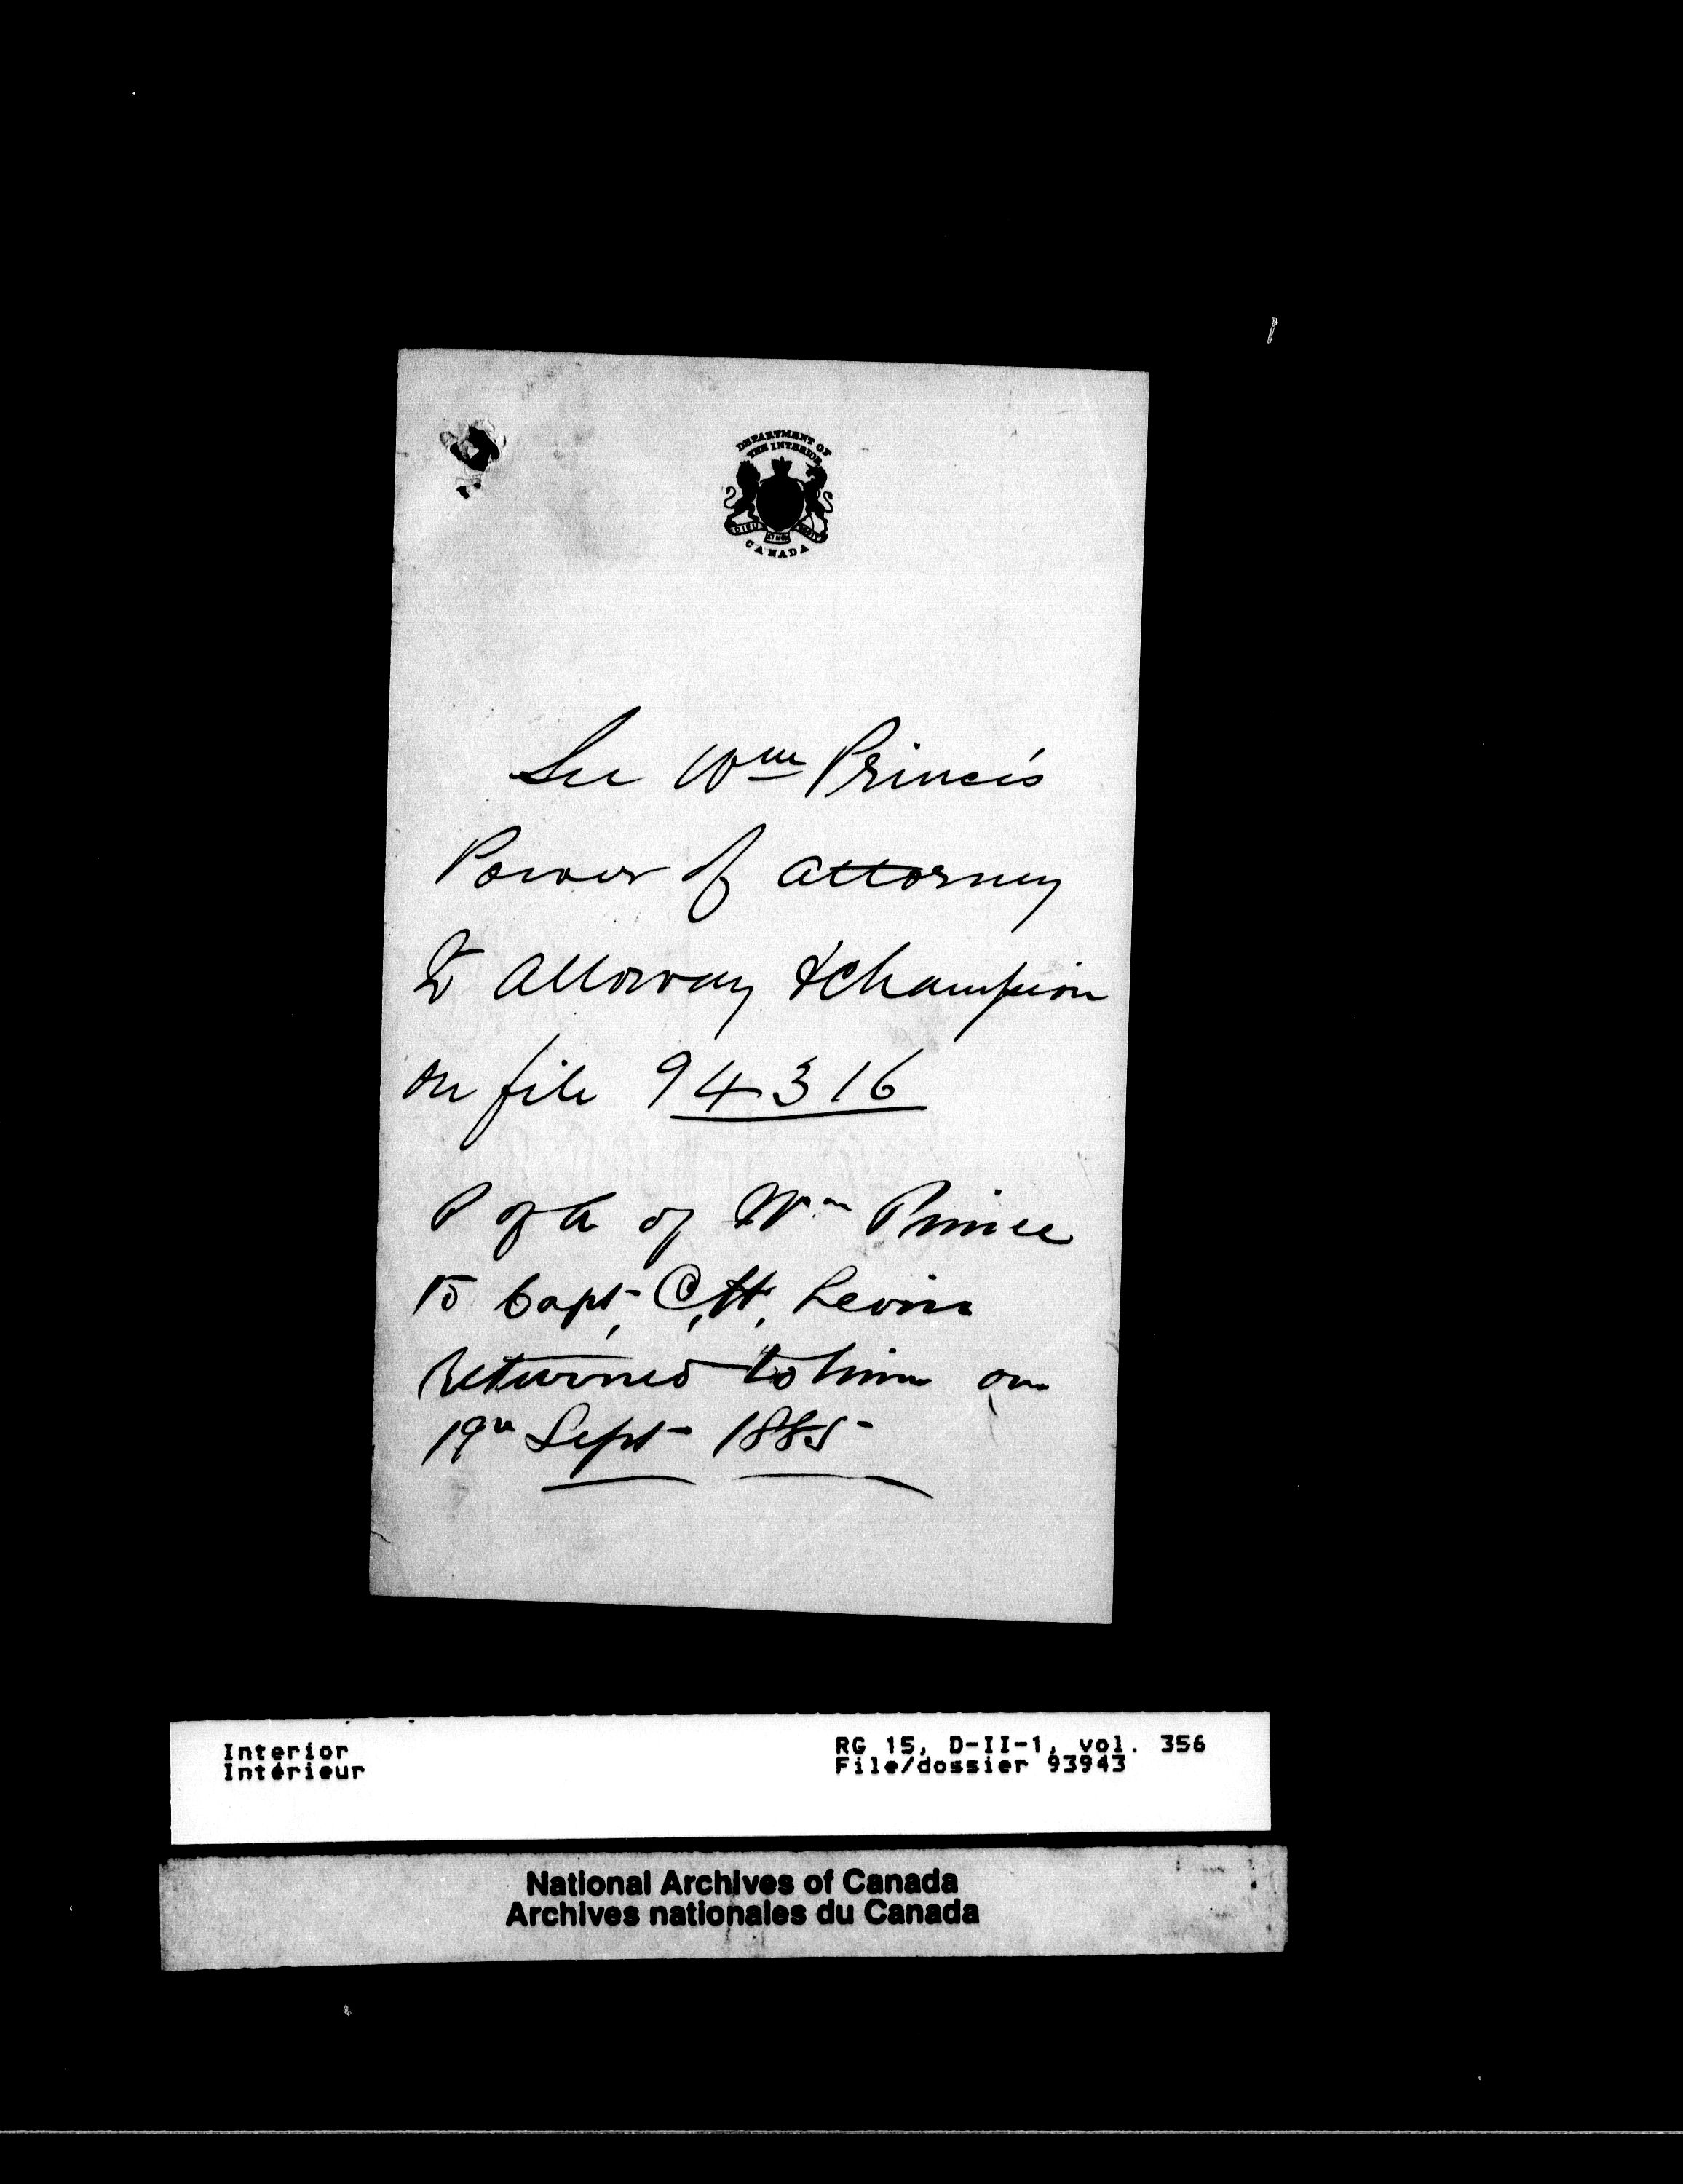 DEPARTMENT OF
THE INTERIOR
DIEU ET MON DROIT
CANADA
See Wm Prince's
Power of attorney
To Alloway & Champion
on file 94316
P of A of Wm Prince
To Capt, C, H, Levin
returned to him on
19th Sept 1885
Interior
Intérieur
RG 15, D-II-1, vol. 356
File/dossier 93943
National Archives of Canada
Archives nationales du Canada